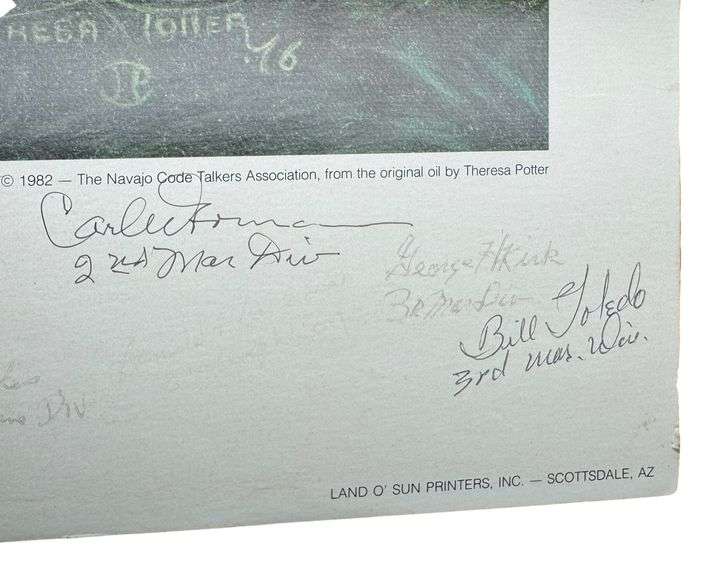 RESA POTTER
'76
© 1982 — The Navajo Code Talkers Association, from the original oil by Theresa Potter
Carl Gorman
2nd Mar Div
George H Kirk
3rd Mar Div
Bill Toledo
3rd Mar. Div.
Div
LAND O' SUN PRINTERS, INC. — SCOTTSDALE, AZ